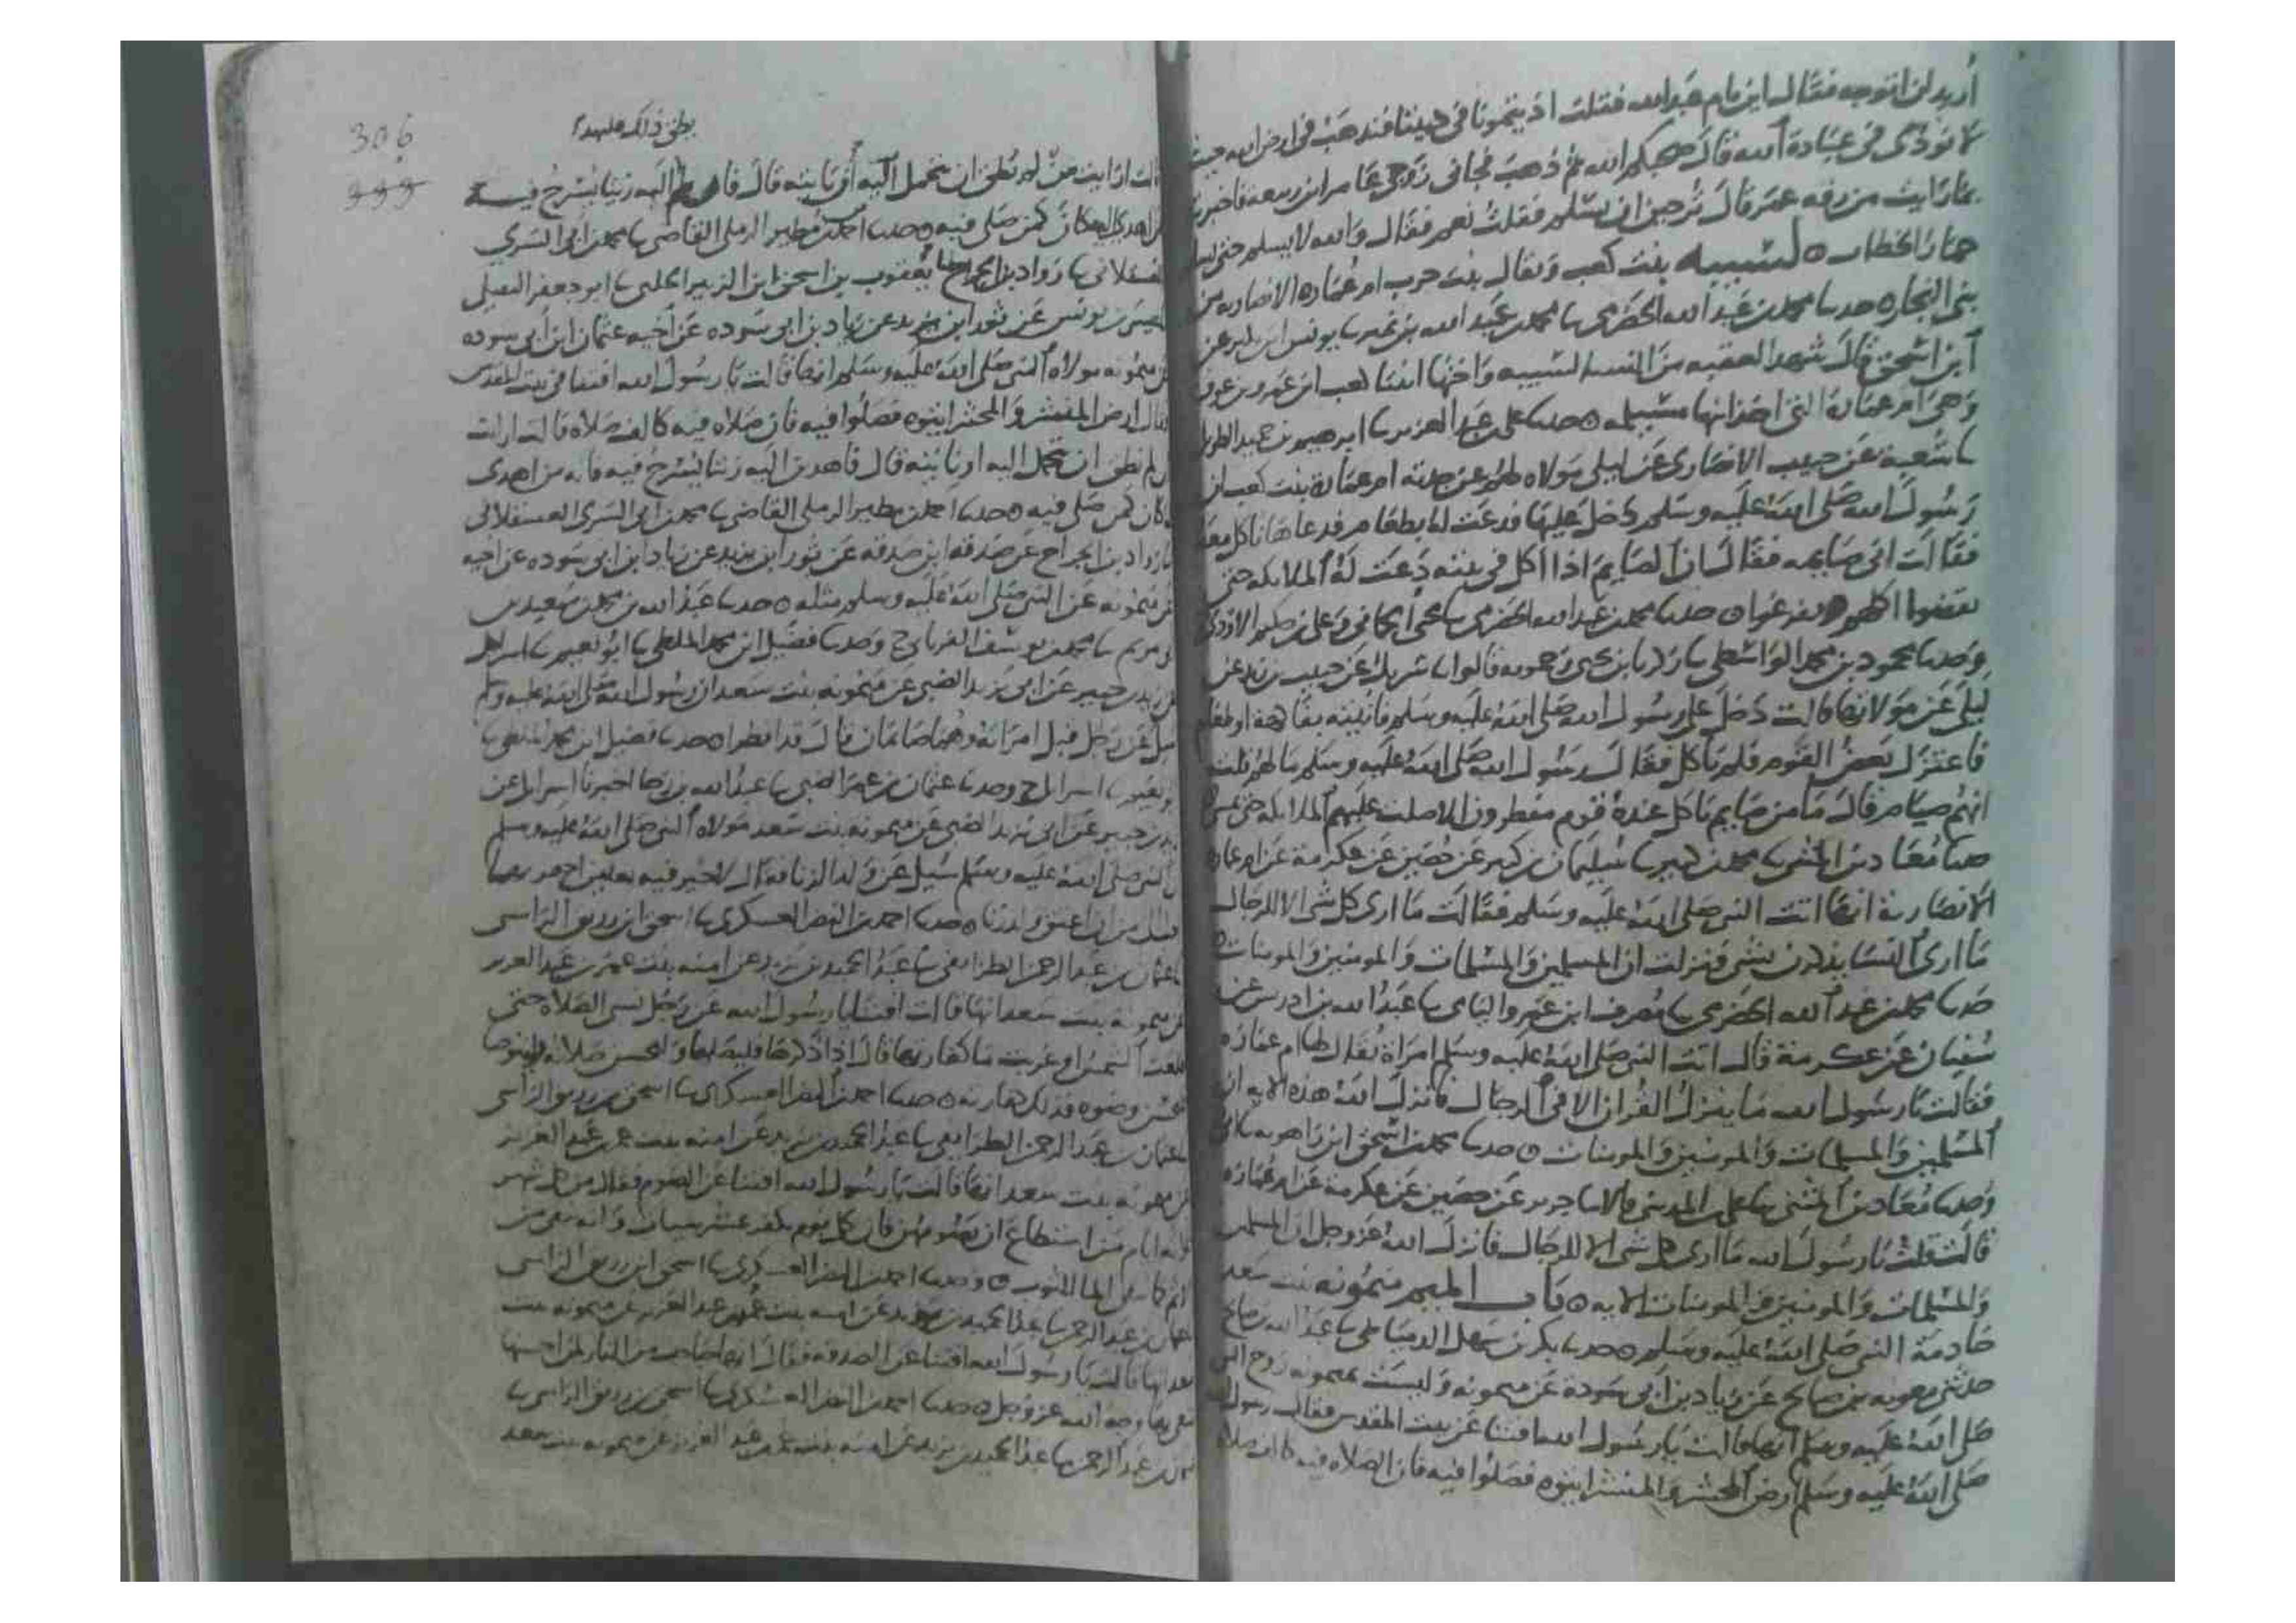 أريد ان اتوجه فقال اين يا ام عبد الله فقلت اذيتمونا في ديننا فنذهب في ارض الله حيث
لا نوذى في عبادة الله فقال صحبكم الله ثم ذهب فجاني زوجي عامر ابن ربيعه فاخبرته
بما رايت من رقه عمر قال ترجين ان يسلم فقلت نعم فقال والله لا يسلم حتى يسلم
حمار الخطاب ه لسيبه بنت كعب ويقال بنت حرب ام عماره الانصاريه من
بني النجار ه حدثنا محمد بن عبد الله الحضرمي نا محمد بن عبد الله بن نمير نا يونس ابن بكير عن
ابن اسحق قال شهد العقبه من النساء لسيبه واختها ابنتا كعب ابن عمرو بن عوف
وهي ام عمارة التي اخذ ابنها مسيلمه ه حدثنا علي بن عبد العزيز نا ابرهيم بن حميد الطويل
نا شعبة عن حبيب الانصاري عن ليلى مولاه لهم عن جدته ام عمارة بنت كعب ان
رسول الله صلى الله عليه وسلم دخل عليها فدعت له بطعام فدعاها تاكل معه
فقالت اني صايمه فقال ان الصايم اذا اكل في بيته دعت له الملايكه حتى
يقضوا اكلهم او يفرغوا ه حدثنا محمد بن عبد الله الحضرمي نا يحيى الحماني وعلي بن حكيم الاودي
وحدثنا محمود بن محمد الواسطي نا زكريا بن يحيى زحمويه قالوا نا شريك عن حبيب بن زيد عن
ليلى عن مولاتها قالت دخل علي رسول الله صلى الله عليه وسلم فاتيته بفاكهة او طعام
فاعتزل بعض القوم فلم ياكل فقال رسول الله صلى الله عليه وسلم ما لهم قلت
انهم صيام قال ما من صايم ياكل عندة قوم مفطرون الا صلت عليهم الملايكه حتى يمسي
حدثنا معاذ بن المثنى نا محمد بن كثير نا سليمان بن كثير عن حصين عن عكرمة عن ام عماره
الانصارية انها اتت النبي صلى الله عليه وسلم فقالت ما ارى كل شي الا للرجال
ما ارى النسا يذكرن بشي فنزلت ان المسلمين والمسلمات والمومنين والمومنات ه
حدثنا محمد بن عبد الله الحضرمي نا مصرف ابن عمرو اليامي نا عبد الله بن ادريس عن
سفيان عن عكرمة قال اتت النبي صلى الله عليه وسلم امراة يقال لها ام عماره
فقالت يا رسول الله ما ينزل القران الا في الرجال فانزل الله هذه الايه ان
المسلمين والمسلمات والمومنين والمومنات ه حدثنا محمد بن اسحق ابن راهويه نا ابي
وحدثنا معاذ بن المثنى نا علي بن المديني قالا نا جرير عن حصين عن عكرمة عن ام عماره
قالت قلت يا رسول الله ما ارى كل شي الا للرجال فانزل الله عز وجل ان المسلمين
والمسلمات والمومنين والمومنات الايه ه باب الميم ميمونه بنت سعد
خادمة النبي صلى الله عليه وسلم ه حدثنا بكر بن سهل الدمياطي نا عبد الله بن صالح
حدثني معويه بن صالح عن زياد بن ابي سودة عن ميمونه وليست بميمونه زوج النبي
صلى الله عليه وسلم انها قالت يا رسول الله افتنا عن بيت المقدس فقال رسول الله
صلى الله عليه وسلم ارض المحشر والمنشر ايتوه فصلوا فيه فان الصلاه فيه كالف صلاه
306
999
يطق ذلك فليهد
قالت ارايت من لم يطق ان يتحمل اليه او ياتيه قال فان لم اليه زيتا يسرج فيه
من اهدى اليه كان كمن صلى فيه ه حدثنا احمد بن مطير الرملي القاضي نا محمد بن ابي السري
العسقلاني نا رواد بن الجراح يعقوب بن اسحق ابن الزبير الحلبي نا ابو جعفر النفيلي
عيسى بن يونس عن ثور ابن يزيد عن زياد بن ابي سوده عن اخيه عثمان ابن ابي سوده
عن ميمونه مولاه النبي صلى الله عليه وسلم انها قالت يا رسول الله افتنا في بيت المقدس
قال ارض المنشر والمحشر ايتوه فصلوا فيه فان صلاه فيه كالف صلاه قالت ارايت
ان لم نطق ان نتحمل اليه او ناتيه قال فاهدين اليه زيتا يسرج فيه فانه من اهدى
كان كمن صلى فيه ه حدثنا احمد بن مطير الرملي القاضي نا محمد بن ابي السري العسقلاني
نا رواد بن الجراح عن صدقه ابن صدقه عن ثور ابن يزيد عن زياد ابن ابي سوده عن اخيه
عن ميمونه عن النبي صلى الله عليه وسلم مثله ه حدثنا عبد الله بن محمد بن سعيد بن
ابي مريم نا محمد بن يوسف الفريابي ح وحدثنا فضيل ابن محمد الملطي نا ابو نعيم نا اسرائيل
عن زيد بن جبير عن ابي يزيد الضبي عن ميمونه بنت سعد ان رسول الله صلى الله عليه وسلم
سيل عن رجل قبل امراته وهما صايمان قال قد افطرا ه حدثنا فضيل ابن محمد الملطي نا
ابو نعيم نا اسرائيل ح وحدثنا عثمان بن عمر الضبي نا عبد الله بن رجا اخبرنا اسرايل عن
زيد بن جبير عن ابي يزيد الضبي عن ميمونه بنت سعد مولاه النبي صلى الله عليه وسلم
ان النبي صلى الله عليه وسلم سيل عن ولد الزنا فقال لا خير فيه نعلين اجاهد بهما
احب الي من ان اعتق ولد زنا ه حدثنا احمد بن النضر العسكري نا اسحق ابن زريق الراسبي
نا عثمان بن عبد الرحمن الطرايفي نا عبد الحميد بن يزيد عن امنه بنت عمر بن عبد العزيز
عن ميمونه بنت سعد انها قالت افتنا يا رسول الله عن رجل نسي الصلاه حتى
طلعت الشمس او غربت ما كفارتها قال اذا ذكرها فليصلها وليحسن صلاته وليتوضا
فيحسن وضوه فذلك كفارته ه حدثنا احمد بن النضر العسكري نا اسحق بن زريق الراسبي
نا عثمان بن عبد الرحمن الطرايفي نا عبد الحميد بن يزيد عن امنه بنت عمر بن عبد العزيز
عن ميمونه بنت سعد انها قالت يا رسول الله افتنا عن الصوم فقال من كل شهر
ثلثه ايام من استطاع ان يصومهن فان كل يوم يكفر عشر سيات وانه ينقى من
الاثم كما ينقي الما الثوب ه وحدثنا احمد بن النضر العسكري نا اسحق ابن زريق الراسبي
نا عثمان بن عبد الرحمن نا عبد الحميد بن يزيد عن امنه بنت عمر بن عبد العزيز عن ميمونه بنت
سعد انها قالت يا رسول الله افتنا عن الصدقه فقال انها حجاب من النار لمن احتسبها
يبتغي بها وجه الله عز وجل ه حدثنا احمد بن النضر العسكري نا اسحق بن زريق الراسبي نا
عثمان بن عبد الرحمن نا عبد الحميد بن يزيد عن امنه بنت عمر بن عبد العزيز عن ميمونه بنت سعد